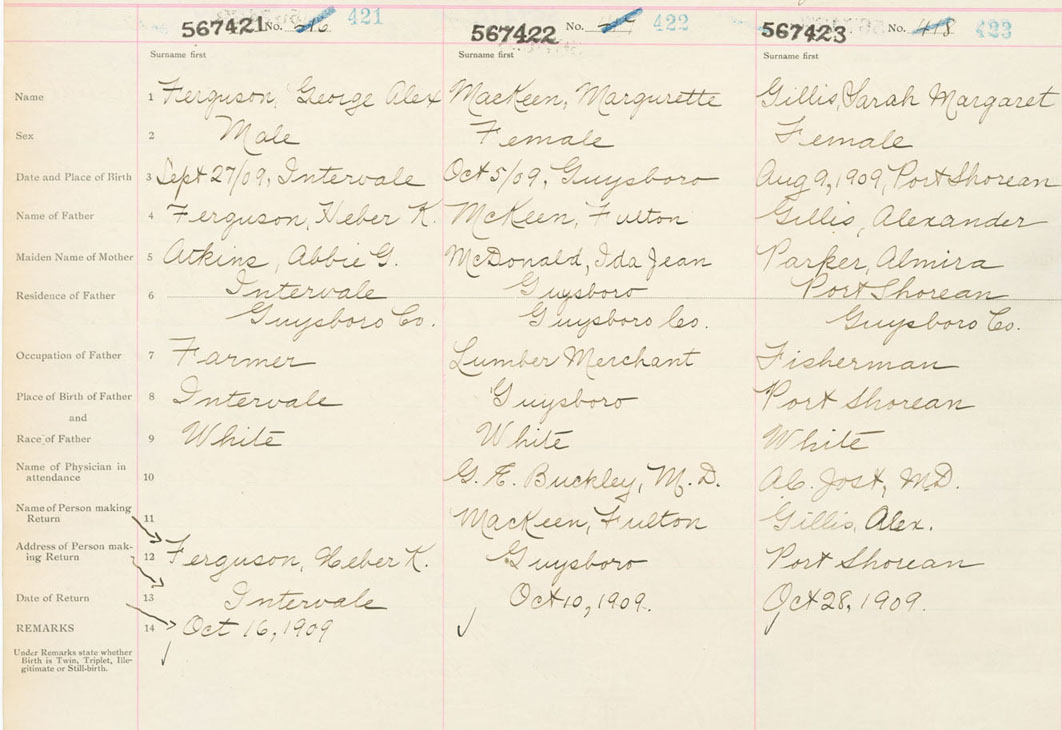 567421 No. 421 567422 No. 422 567423 No. 418 423
Surname first Surname first Surname first
Name 1 Ferguson, George Alex MacKeen, Margurette Gillis, Sarah Margaret
Sex 2 Male Female Female
Date and Place of Birth 3 Sept 27/09, Intervale Oct 5/09, Guysboro Aug 9, 1909, Port Shorean
Name of Father 4 Ferguson, Heber K. McKeen, Fulton Gillis, Alexander
Maiden Name of Mother 5 Atkins, Abbie G. McDonald, Ida Jean Parker, Almira
Residence of Father 6 Intervale Guysboro Port Shorean
Guysboro Co. Guysboro Co. Guysboro Co.
Occupation of Father 7 Farmer Lumber Merchant Fisherman
Place of Birth of Father 8 Intervale Guysboro Port Shorean
and
Race of Father 9 White White White
Name of Physician in
attendance 10 G. E. Buckley, M.D. A.C. Jost, M.D.
Name of Person making
Return 11 MacKeen, Fulton Gillis, Alex.
Address of Person mak-
ing Return 12 Ferguson, Heber K. Guysboro Port Shorean
Date of Return 13 Intervale Oct 10, 1909. Oct 28, 1909.
REMARKS 14 Oct 16, 1909
Under Remarks state whether
Birth is Twin, Triplet, Ille-
gitimate or Still-birth.